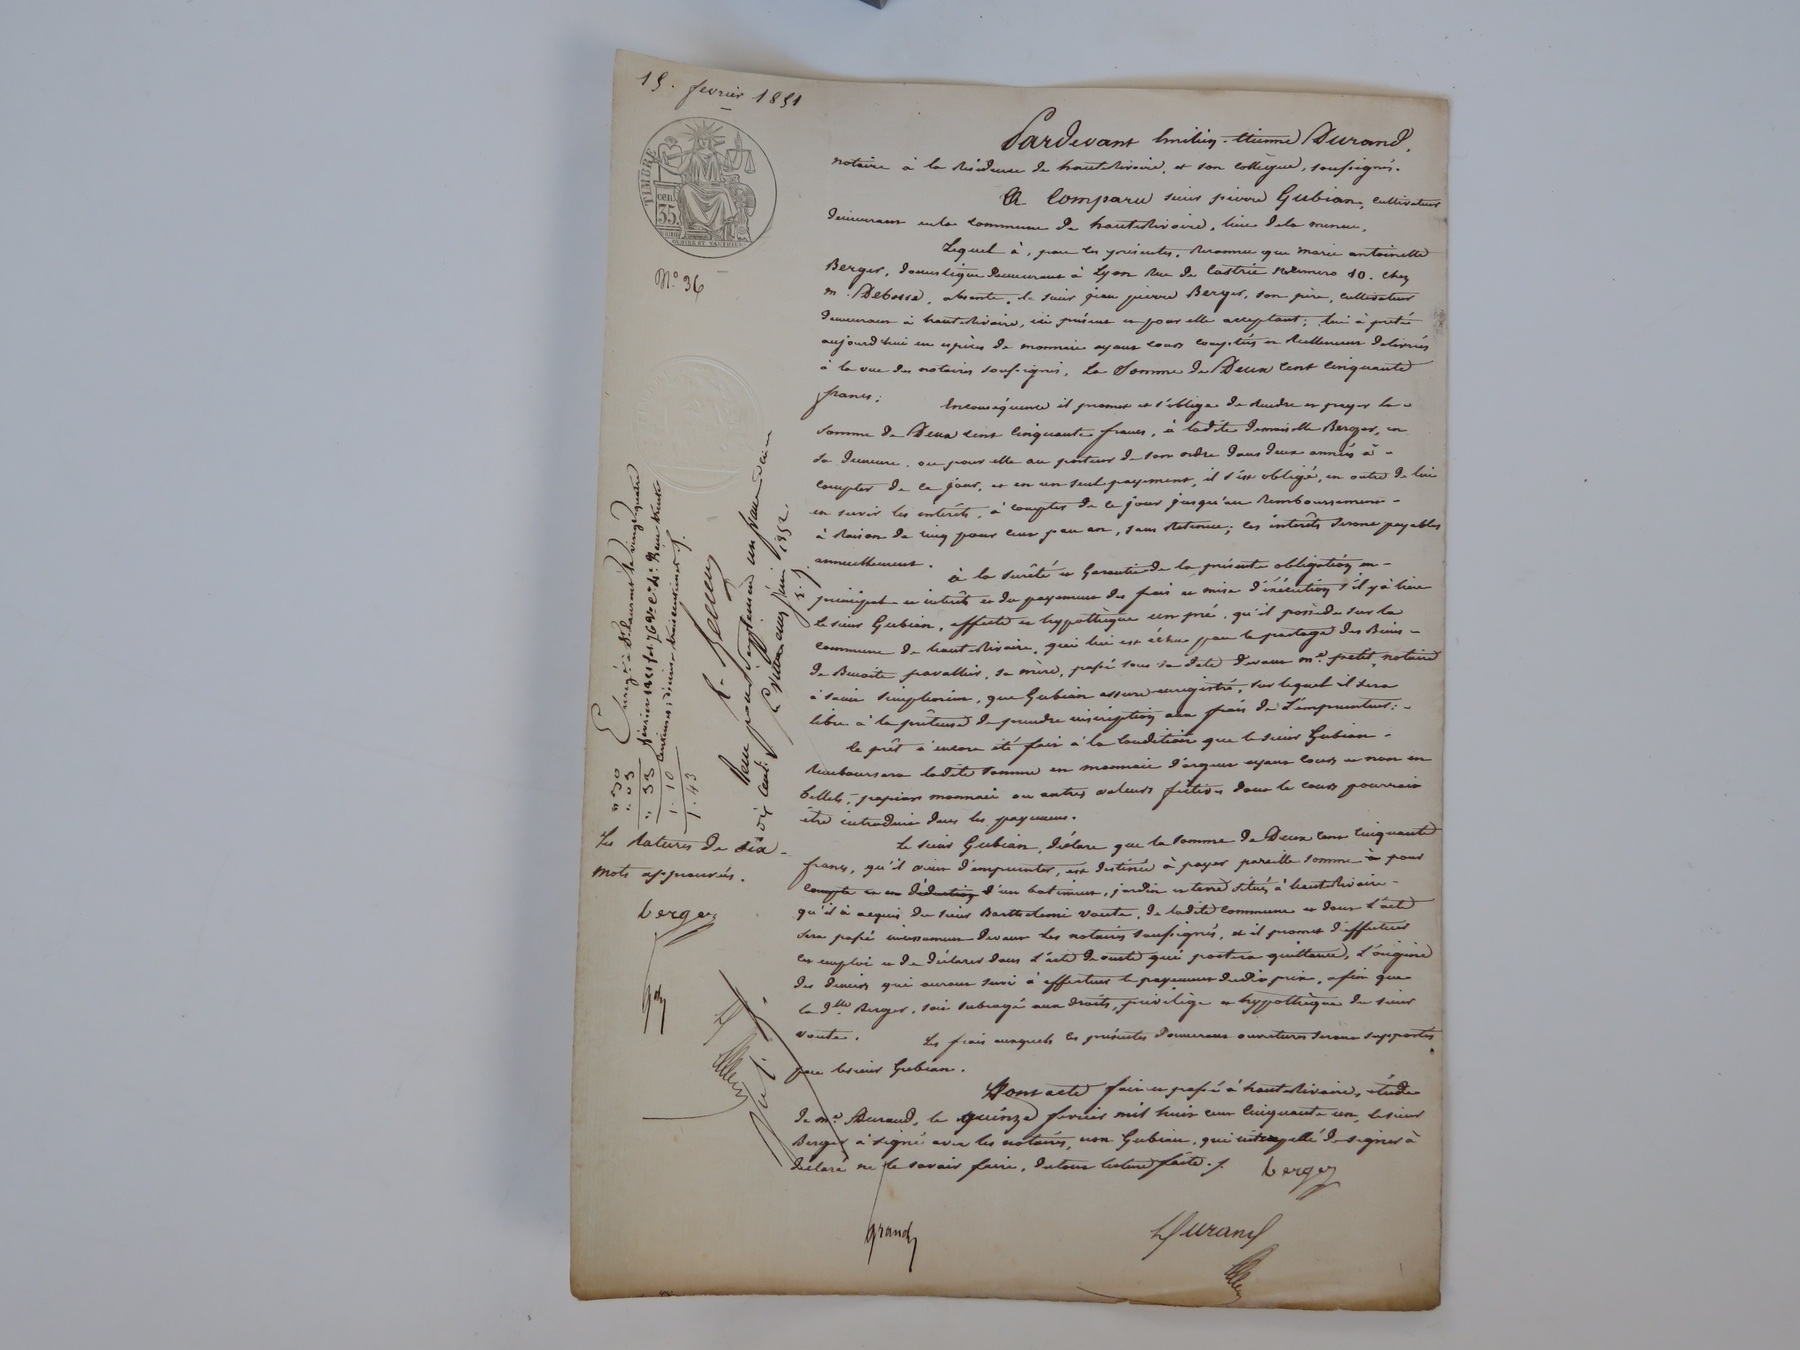 15. fevrier 1851
TIMBRE
cent.
35.
N.º 36
Pardevant Emilien-Etienne Durand,
notaire à la Résidence de hauteRivoire, et son collègue, soussignés.
A Comparu sieur pierre Gubian, cultivateur
demeurant en la commune de hauteRivoire, lieu de la
Lequel à, par ces présentes, Reconnu que marie antoinette
Berger, domestique demeurant à Lyon Rue de Castrie Numero 10. chez
m. Debosse, absente, le sieur jean pierre Berger, son père, cultivateur
demeurant à hauteRivoire, ici présent et pour elle acceptant; lui à prêté
aujourd'hui en espèces de monnaie ayant cours comptés et Réellement délivrés
à la vue des notaires soussignés, La Somme de Deux Cent Cinquante
francs;
Enconséquence il promet et s'oblige de Rendre et payer la
somme de Deux Cent Cinquante francs, à ladite demoiselle Berger, en
sa demeure, ou pour elle au porteur de son ordre dans deux années à
compter de ce jour, et en un seul payement, il s'est obligé, en outre de lui
en servir les intérêts, à compter de ce jour jusqu'au Remboursement
à Raison de cinq pour cent par an, sans Retenue; ces intérêts seront payables
annuellement.
à la sureté et Garantie de la présente obligation en
principal et intérêts et du payement des frais et mise d'éxécution s'il y à lieu
le sieur Gubian, affecte et hypothèque un pré, qu'il possède sur la
commune de hauteRivoire, qui lui est échu par le partage des Biens
de Benoite pavallier, sa mère, passé sous sa date devant m.e petit, notaire
à saint simphorien, que Gubian assure enregistré, sur lequel il sera
libre à la prêteuse de prendre inscription aux frais de L'emprunteur;
Ce prêt à encore été fait à la Condition que le sieur Gubian
Remboursera ladite somme en monnaie d'argent ayant cours et non en
billets, papiers monnaie ou autres valeurs fictives dont le cours pourrait
être introduit dans les payements.
Le sieur Gubian, déclare que la somme de Deux Cent Cinquante
francs, qu'il vient d'emprunter, est destinée à payer pareille somme à pour
compte et en déduction d'un batiment, jardin et terre situés à hauteRivoire
qu'il à acquis du sieur Barthelemi voute, de ladite commune et dont L'acte
sera passé incessamment devant les notaires soussignés, et il promet d'effectuer
cet emploi et de déclarer dans L'acte de vente qui portera quittance, L'origine
des deniers qui auront servi à effectuer le payement dudit prix, afin que
la d.lle Berger, soit subrogée aux droits, privilège et hypothèque du sieur
voute.
Les frais auxquels les présentes donneront ouverture seront supportés
par le sieur Gubian.
Dont acte fait et passé à hauteRivoire, étude
de m.e Durand, le quinze fevrier mil huit cent Cinquante un, le sieur
Berger à signé avec les notaires, non Gubian, qui interpellé de signer à
déclaré ne le savoir faire, du tout lecture faite.
berger
grand
Durand
Les Ratures de six
mots approuvés.
berger
Enregistré à S.t Laurent le vingt quatre
février 1851 f.o 76 V.o C.e 4.e Reçu trente
centimes, dixième trois centimes
" 30
" 03
" 33
1. 10
1. 43
Reçu pour supplément un franc
dix cent.
juin 1852.